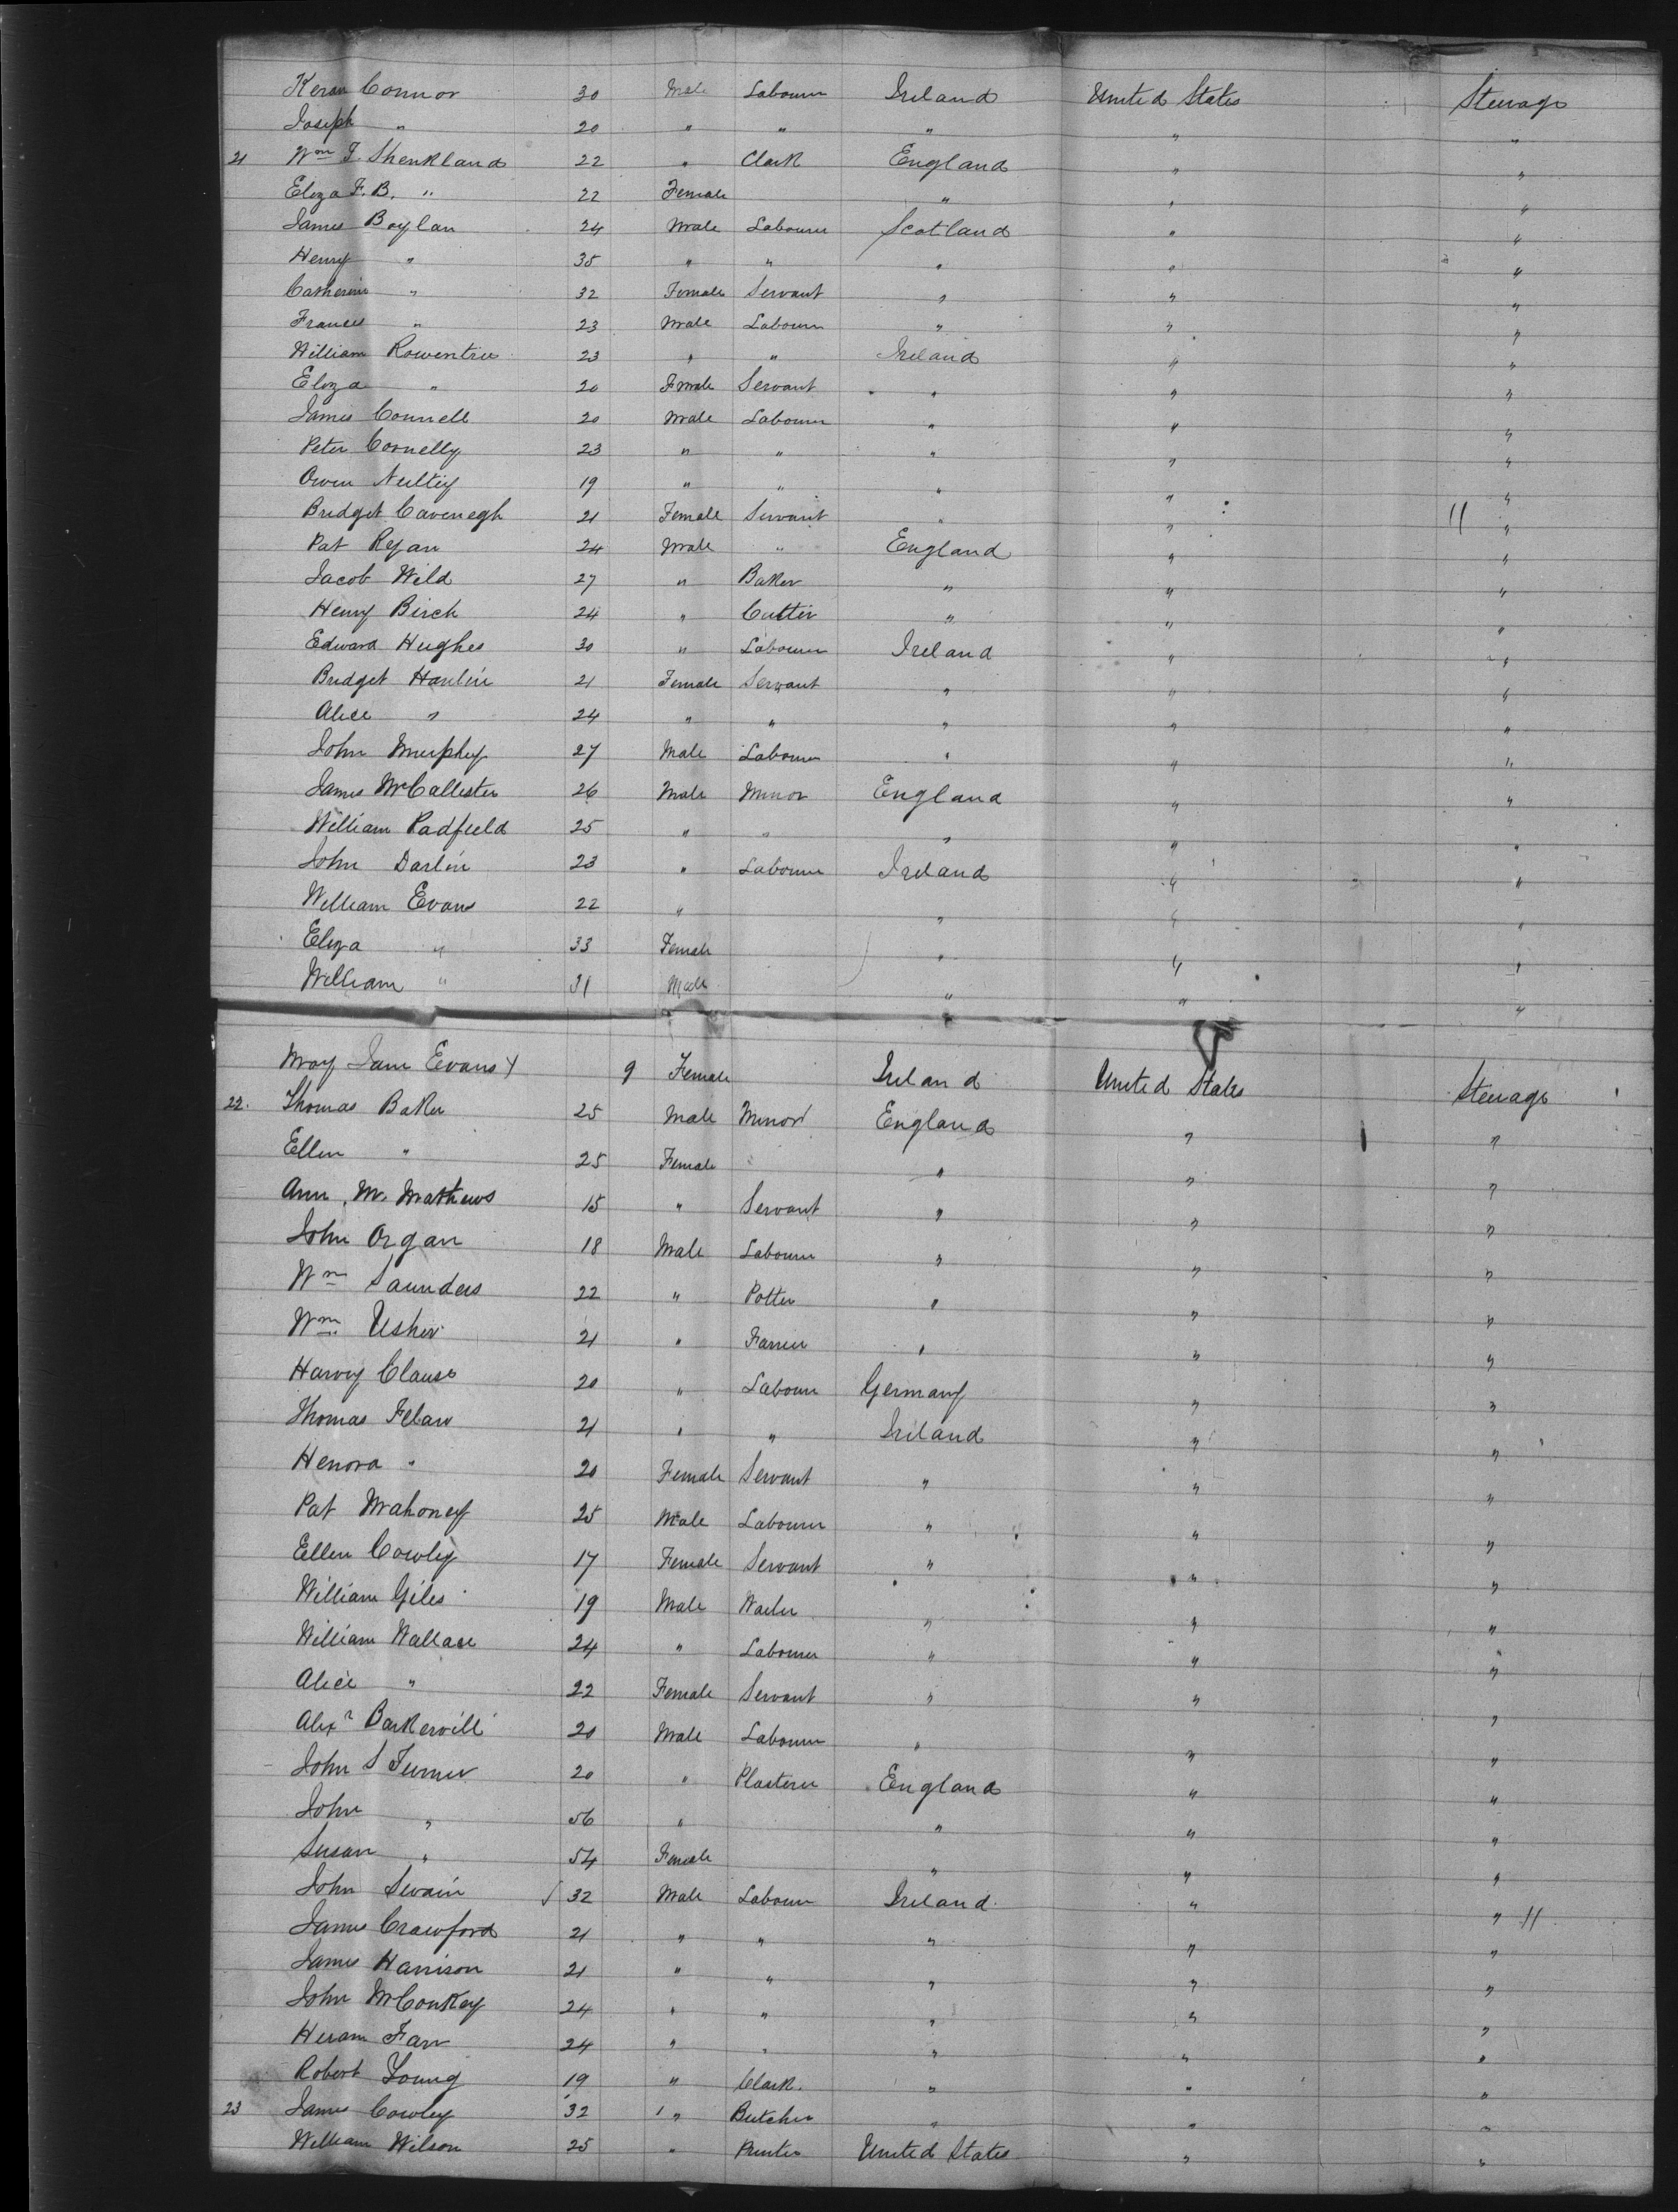 Keran Connor 30 Male Labourer Ireland United States Steerage
Joseph " 20 " " " " "
21 Wm F. Shenkland 22 " Clark England " "
Eliza F. B. " 22 Female " " "
James Boylan 24 Male Labourer Scotland " "
Henry " 35 " " " " "
Catherine " 32 Female Servant " " "
Frances " 23 Male Labourer " " "
William Rowentree 23 " " Ireland " "
Eliza " 20 Female Servant " " "
James Connell 20 Male Labourer " " "
Peter Connelly 23 " " " " "
Owen Nultiy 19 " " " " "
Bridget Cavenegh 21 Female Servant " " 11 "
Pat Ryan 24 Male " England " "
Jacob Wild 27 " Baker " " "
Henry Birch 24 " Cutter " " "
Edward Hughes 30 " Labourer Ireland " "
Bridget Hanlin 21 Female Servant " " "
Alice " 24 " " " " "
John Murphy 27 Male Labourer " " "
James McCallister 26 Male Minor England " "
William Padfield 25 " " " " "
John Darlin 23 " Labourer Ireland " "
William Evans 22 " " " "
Eliza " 33 Female " " "
William " 31 Male " " "
May Jane Evans 9 Female Ireland United States Steerage
22. Thomas Baker 25 Male Minor England " "
Ellen " 25 Female " " "
Ann M. Mathews 15 " Servant " " "
John Organ 18 Male Labourer " " "
Wm Saunders 22 " Potter " " "
Wm Usher 21 " Farmer " " "
Harvy Clause 20 " Labourer Germany " "
Thomas Felaw 21 " " Ireland " "
Henora " 20 Female Servant " " "
Pat Mahoney 25 Male Labourer " " "
Ellen Cowley 17 Female Servant " " "
William Giles 19 Male Waiter " " "
William Wallace 24 " Labourer " " "
Alice " 22 Female Servant " " "
Alexr Baskervill 20 Male Labourer " " "
John S Turner 20 " Plasterer England " "
John " 56 " " " "
Susan " 54 Female " " "
John Swain 32 Male Labourer Ireland " " 11
James Crawford 21 " " " " "
James Harrison 21 " " " " "
John McConkey 24 " " " " "
Heram Farr 24 " " " " "
Robert Young 19 " Clark. " " "
23 James Cowley 32 " Butcher " " "
William Wilson 25 " Printer United States " "